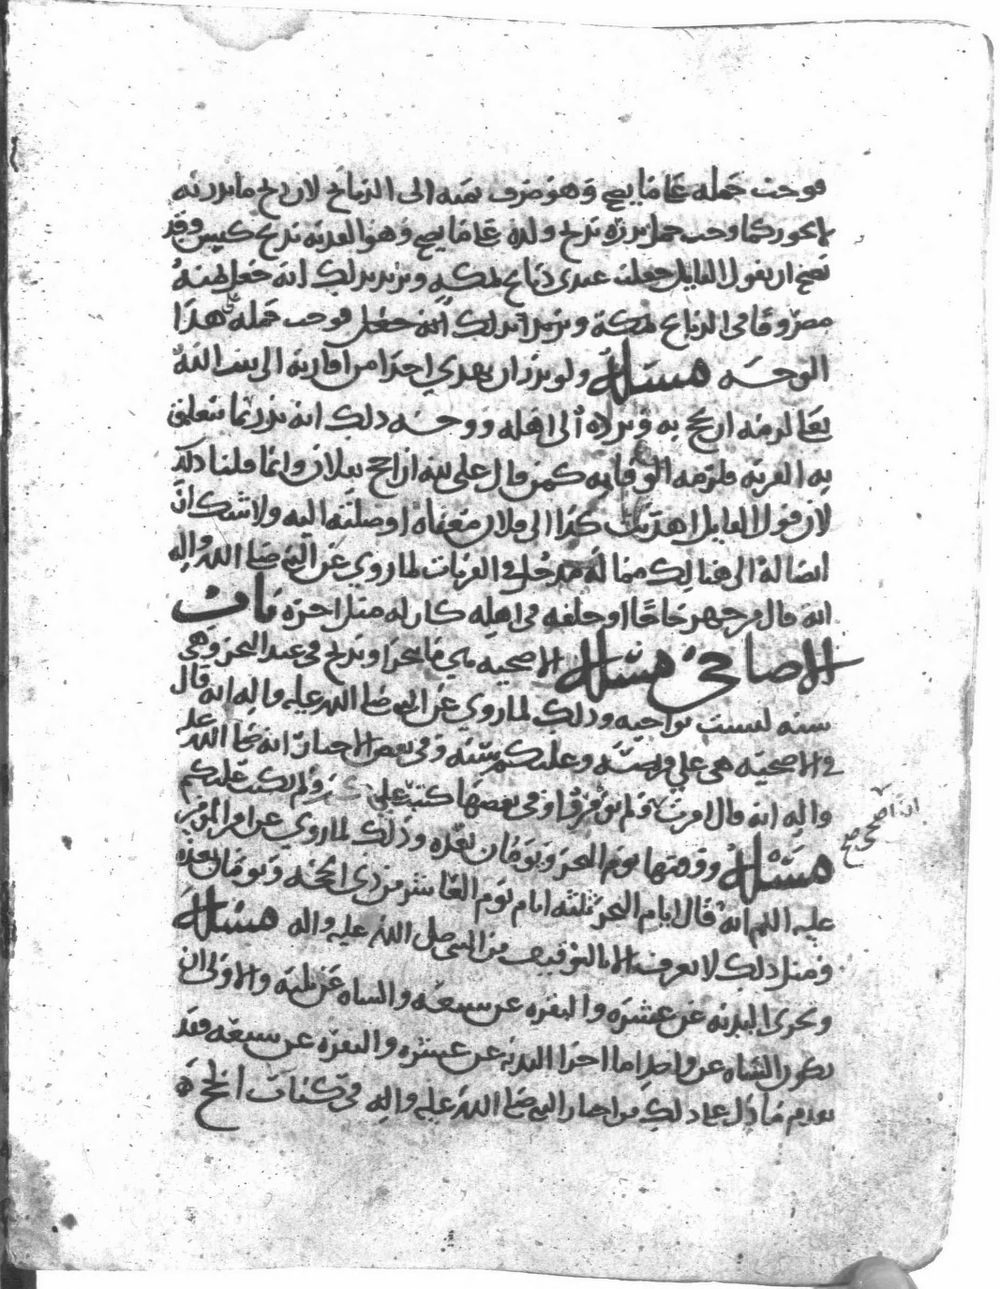 فوجب حمله على ما يصح وهو صرف ثمنه الى الذبائح لان ذبح ما نذر ذبحه
لا يجوز كما وجب حمل نذره بذبح ولده على ما يصح وهو الفدية بذبح كبش وقد
يصح ان يقول القايل جعلت عبدي ذبائح لمكه ويريد بذلك انه جعل ثمنه
مصروفا في الذبائح لمكة ويريد بذلك انه جعل فوجب حمله على هذا
الوجه مسئلة ولو نذر ان يهدي احدا من اقاربه الى بيت الله
تعالى لزمه ان يحج به ويرده الى اهله ووجه ذلك انه نذر بما يتعلق
به القربه فلزمه الوفا به كمن قال علي لله ان احج بفلان وانما قلنا ذلك
لان قول القايل اهديت كذا الى فلان معناه اوصلته اليه ولا شك ان
ايصاله الى هنالك مما له مدخل في القربات لما روي عن النبي صلى الله واله
انه قال من جهز حاجا او خلفه في اهله كان له مثل اجره باب
الاضاحي مسئلة الاضحيه هي ما ينحر او يذبح في عيد النحر وهي
سنه ليست بواجبه وذلك لما روي عن النبي صلى الله عليه واله انه قال
في الاضحيه هي علي فريضه وعليكم سنه وفي بعض الاخبار انه صلى الله عليه
واله انه قال امرت ولم تؤمروا وفي بعضها كتب علي ولم يكتب عليكم
مسئلة ووقتها يوم النحر ويومان بعده وذلك لما روي عن امير المؤمنين
عليه السلم انه قال ايام النحر ثلثه ايام يوم العاشر من ذي الحجه ويومان بعده
ومثل ذلك لا يعرف الا بالتوقيف من النبي صلى الله عليه واله مسئلة
وتجزي البدنه عن عشره والبقره عن سبعه والشاه عن ثلثه والاولى ان
يكون الشاه عن واحد اما اجزا البدنه عن عشره والبقره عن سبعه فقد
تقدم ما دل على ذلك من اخبار النبي صلى الله عليه واله في كتاب الحج